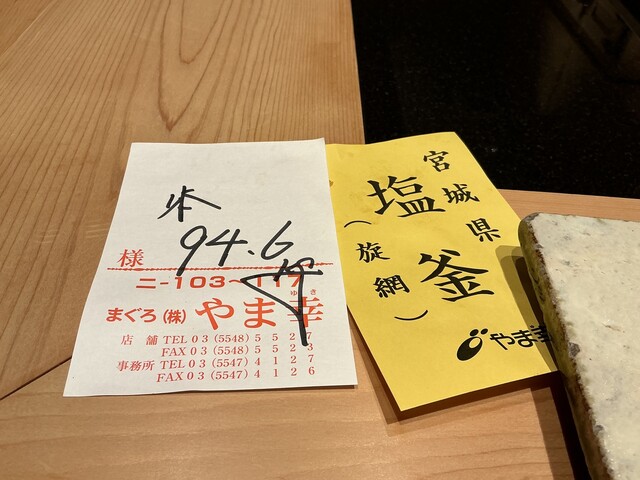 94.6
様
ニ-103~117
ゆき
まぐろ(株)やま幸
店舗 TEL 03(5548)5527
FAX 03(5548)5523
事務所 TEL 03(5547)4127
FAX 03(5547)4126
宮城県
塩釜
(旋網)
やま幸